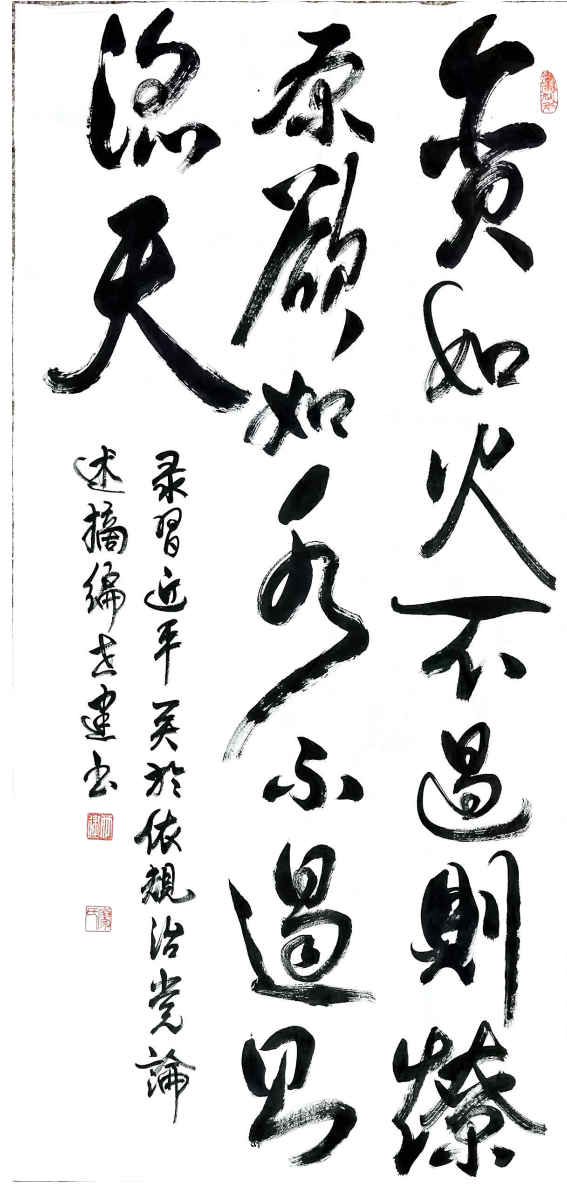 贪如火不遏則燎
原欲如水不遏则
滔天
录习近平关於依规治党論
述摘编志建书